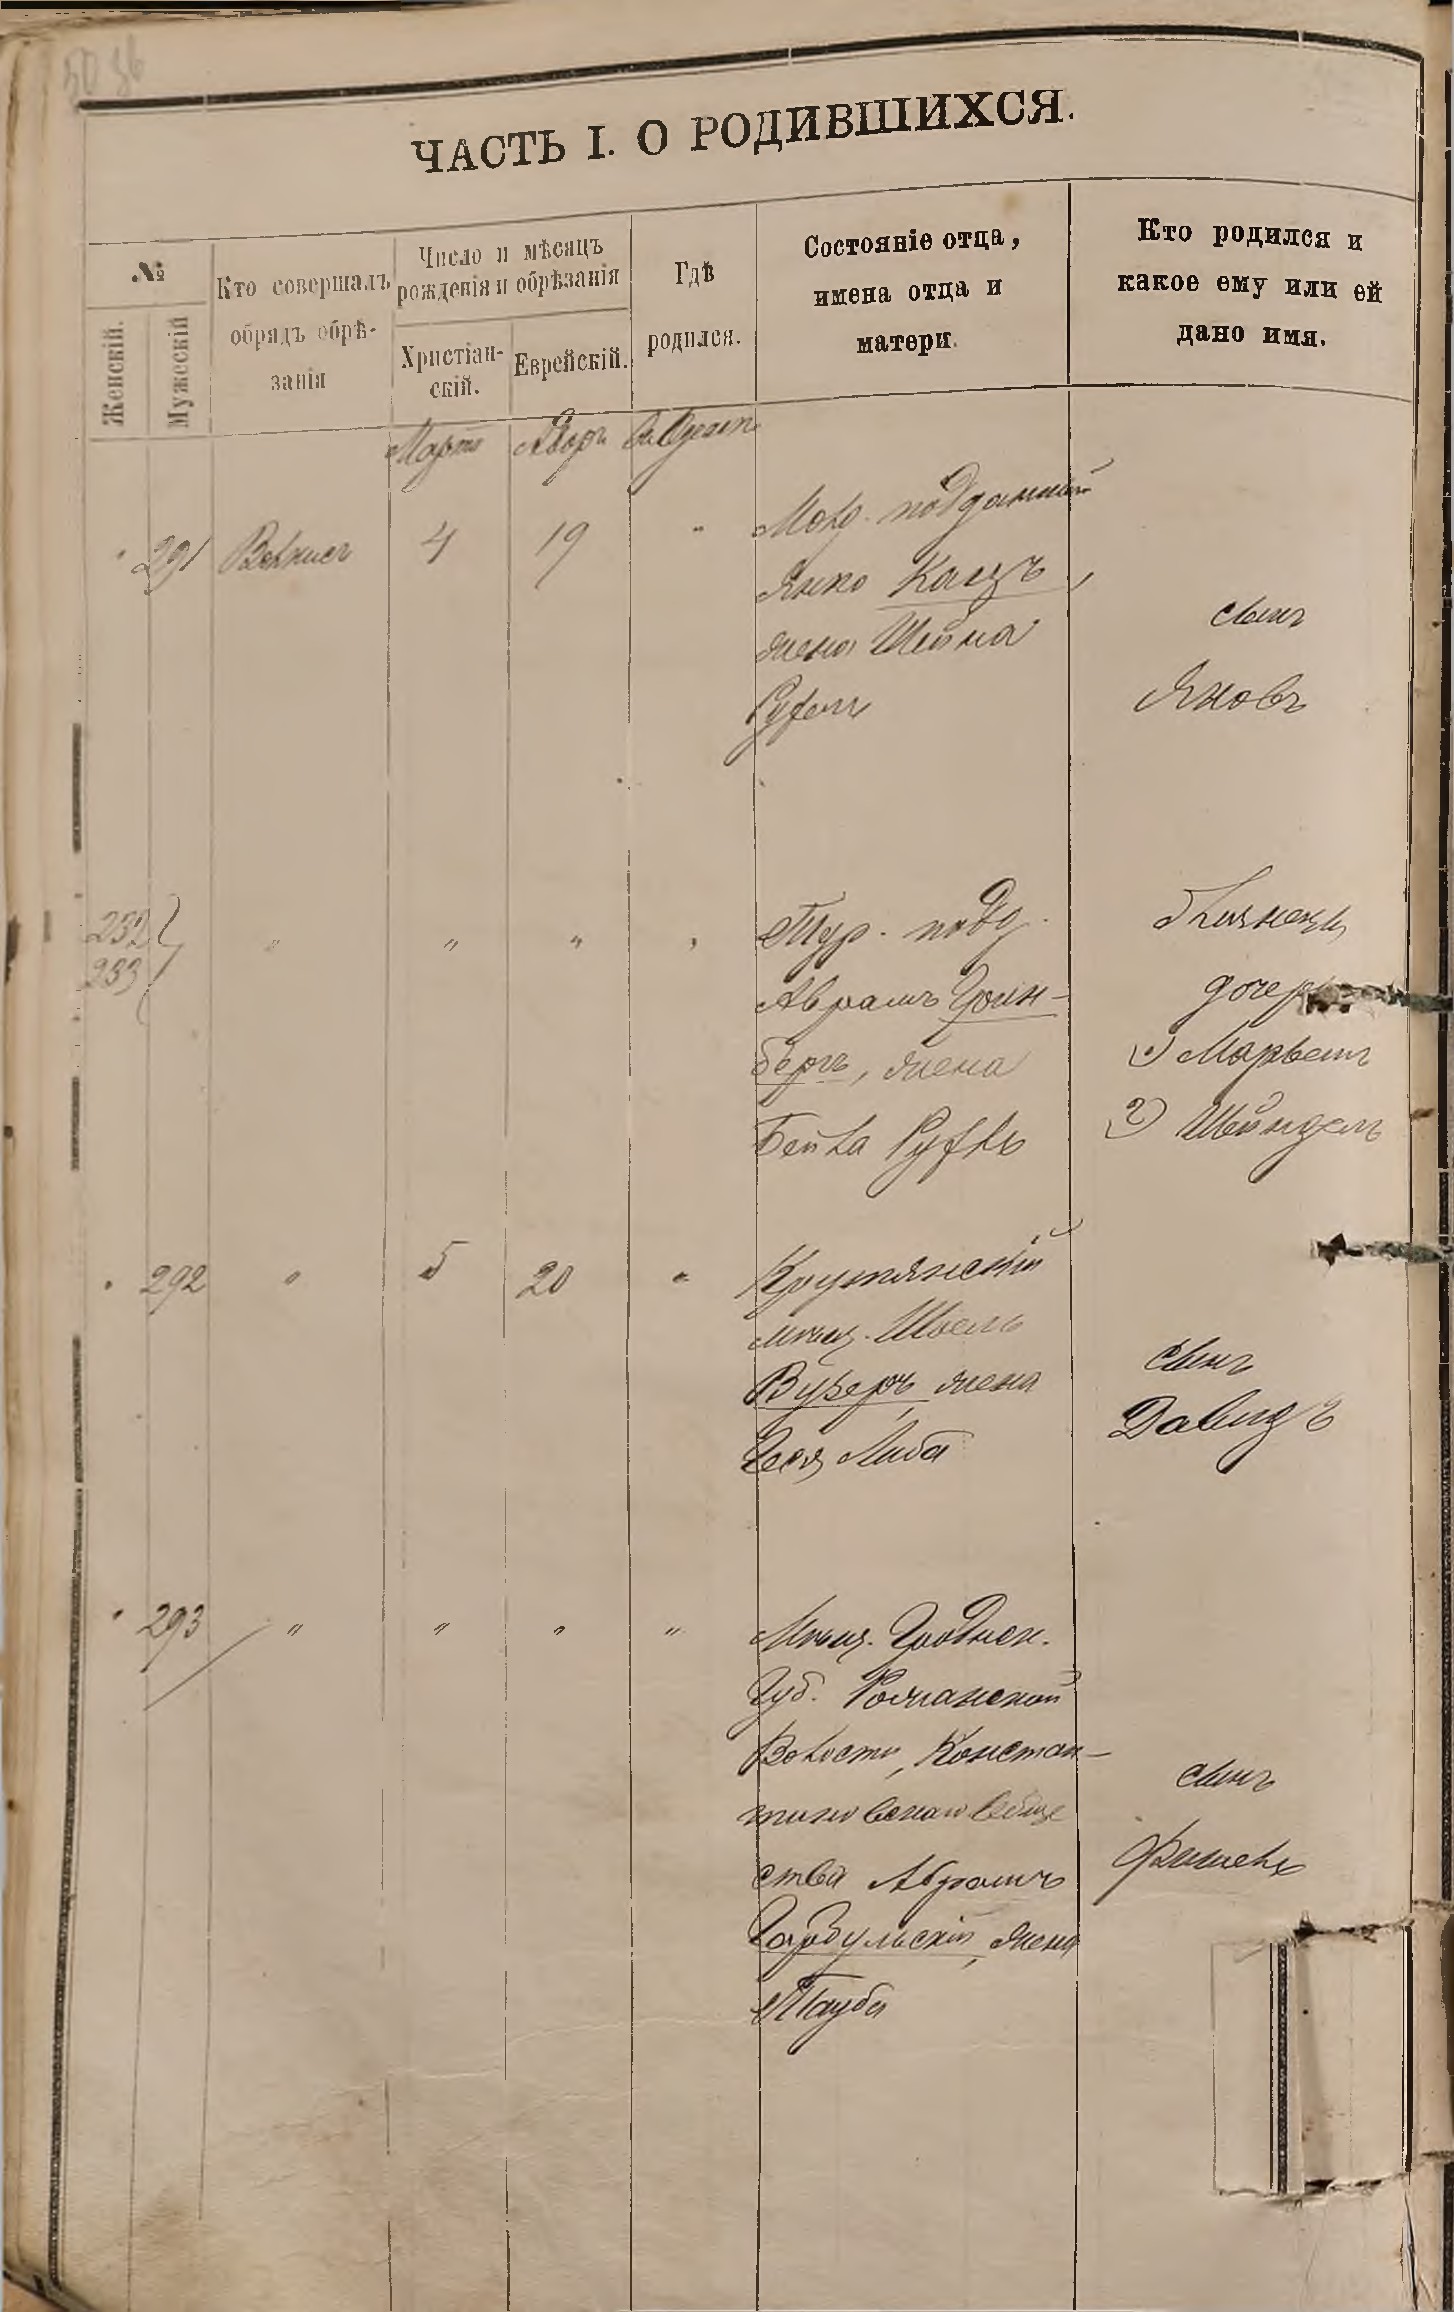 ЧАСТЬ I. О РОДИВШИХСЯ.
№
Женскій.
Мужескій
Кто совершалъ
обрядъ обрѣ-
занія
Число и мѣсяцъ
рожденія и обрѣзанія
Христіан-
скій.
Еврейскій.
Гдѣ
родился.
Состояніе отца,
имена отца и
матери.
Кто родился и
какое ему или ей
дано имя.
Мартъ Адаръ въ Одессѣ
" 291 4 19 " подданный
Янко Кацъ,
жена Шейна
Рухель
сынъ
Яковъ
232
233 " " " " Тур. подд.
Авраамъ Грин-
бергъ, жена
Бейла Рухль
близнецы
дочери
1) Марьемъ
2) Шейндель
" 292 " 5 20 " Крутянскій
мѣщ. Шоель
жена
Либа
сынъ
Давидъ
" 293 " " " " Мѣщ. Гроднен.
Губ.
Волости, Констан-
тиновскаго Обще
ства Абрамъ
жена
Тауба
сынъ
Фишель